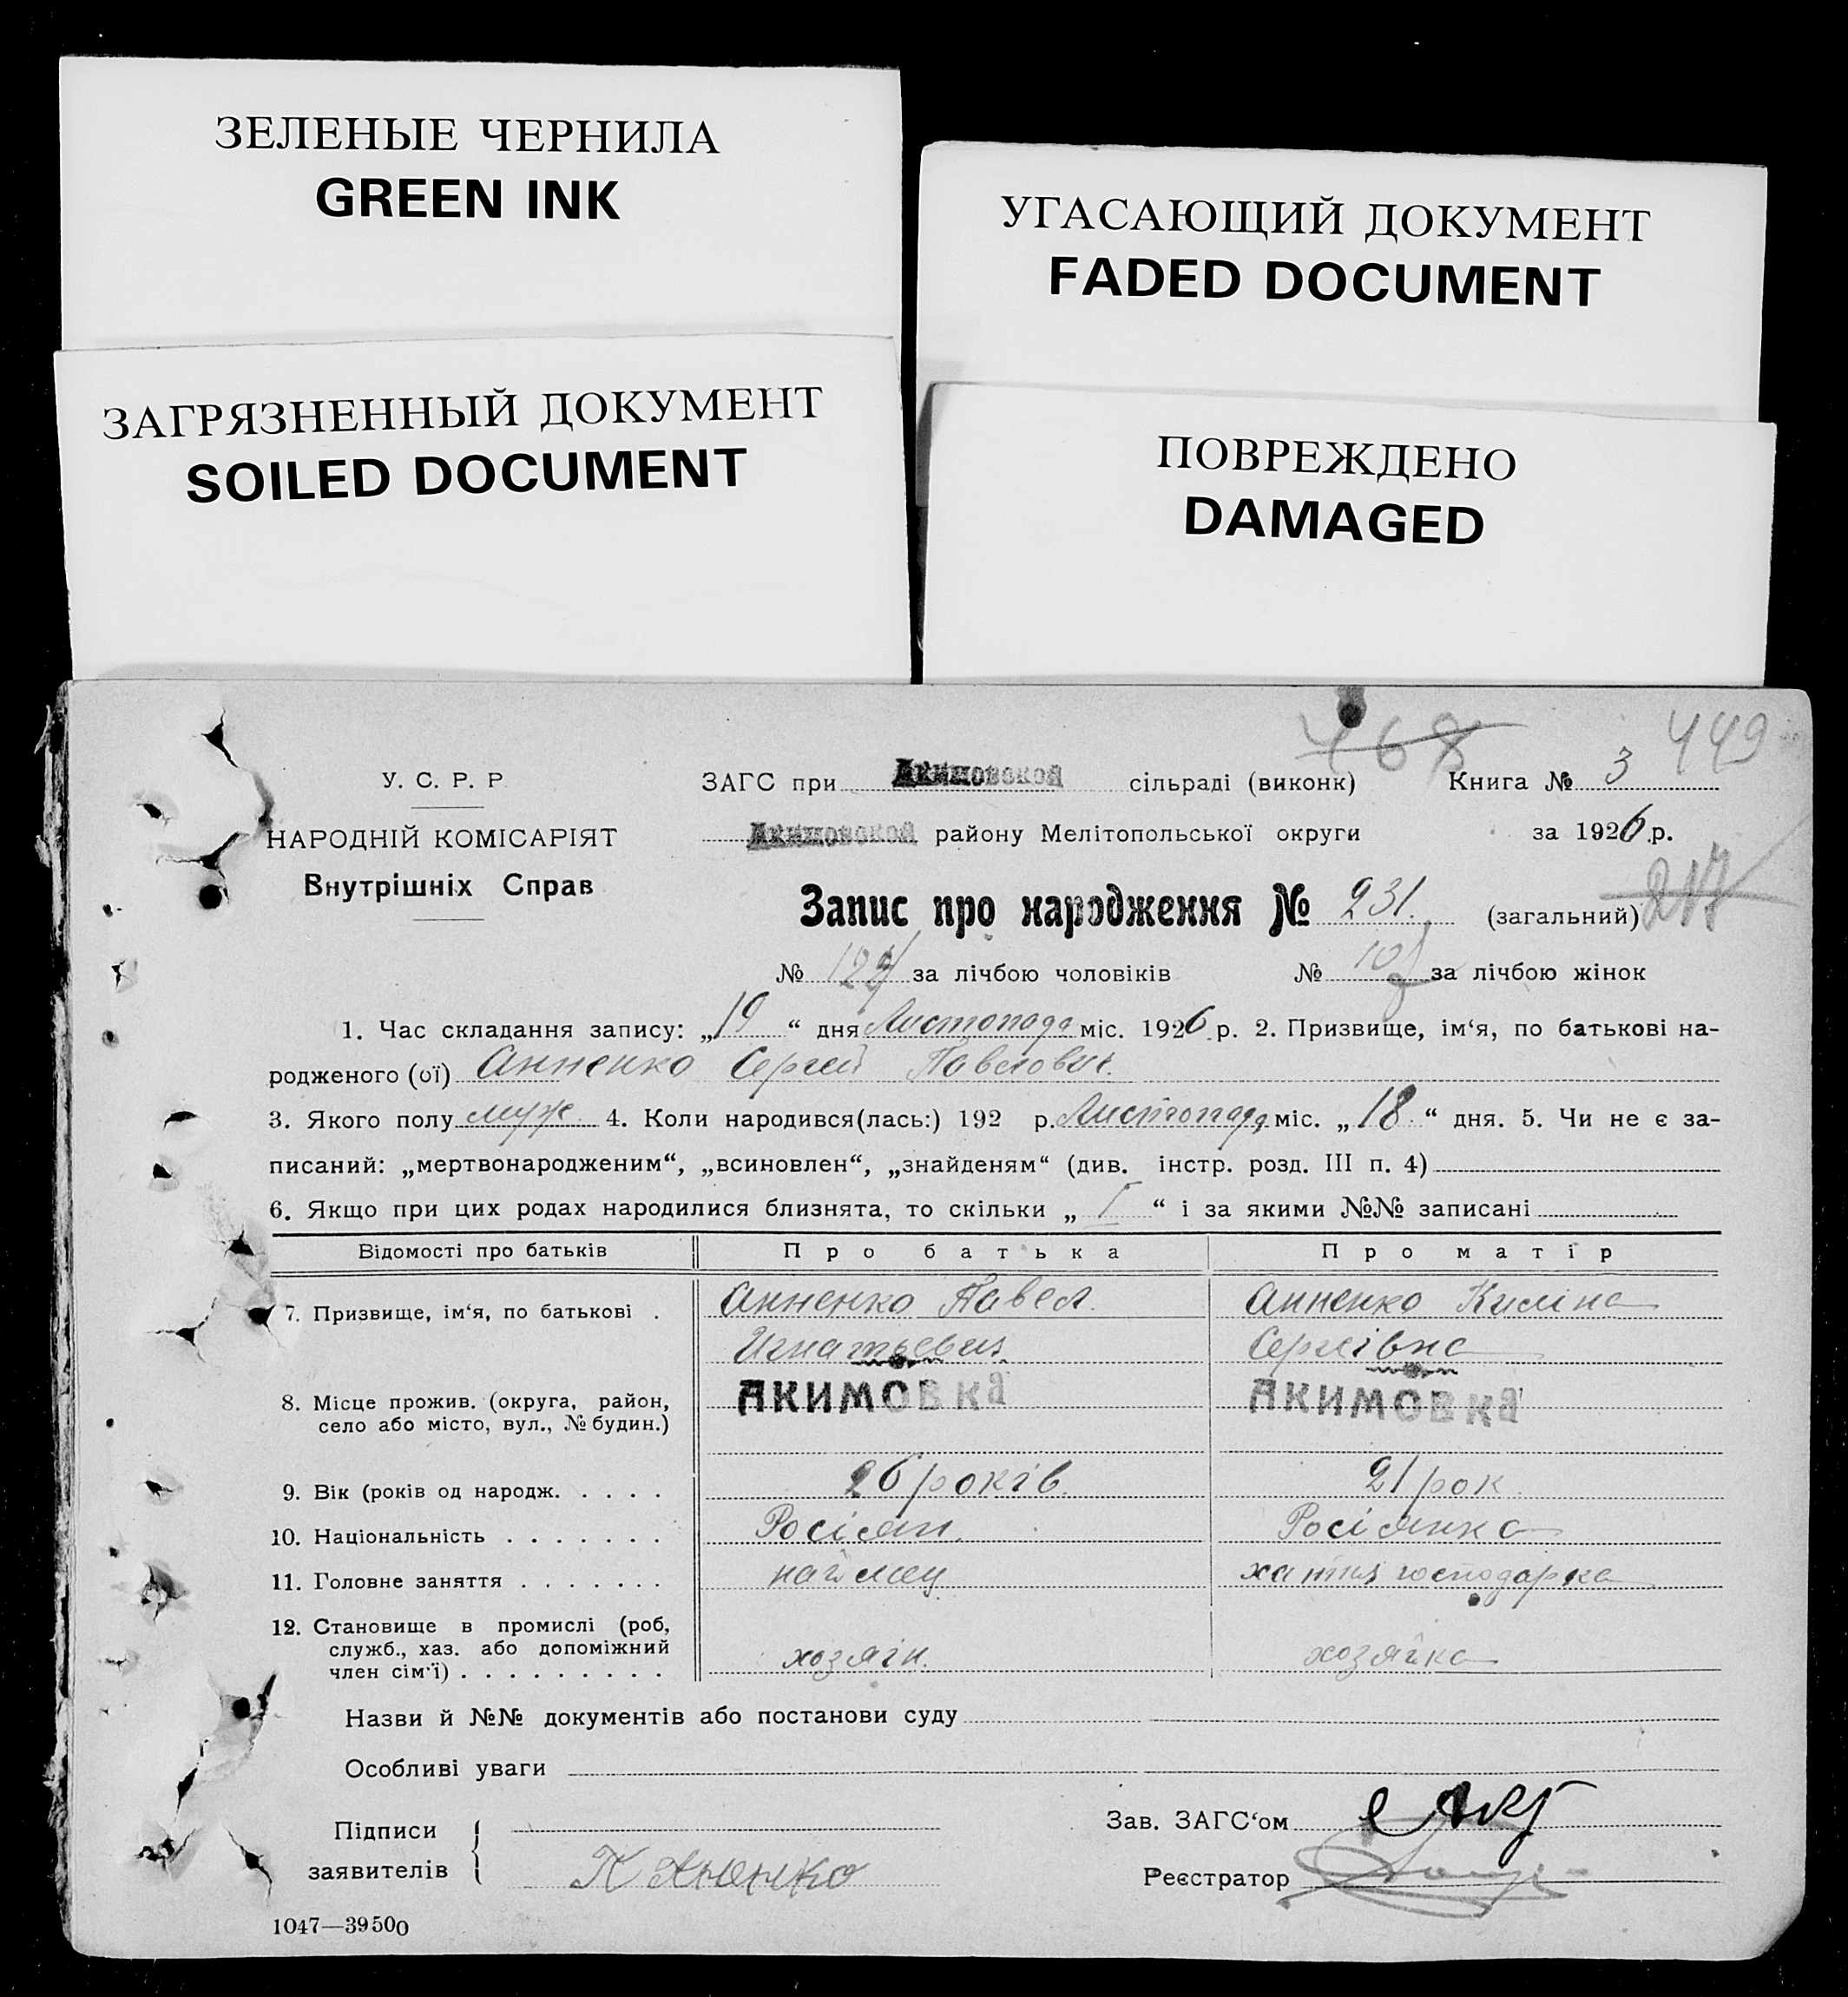 ЗЕЛЕНЫЕ ЧЕРНИЛА
GREEN INK
УГАСАЮЩИЙ ДОКУМЕНТ
FADED DOCUMENT
ЗАГРЯЗНЕННЫЙ ДОКУМЕНТ
SOILED DOCUMENT
ПОВРЕЖДЕНО
DAMAGED
468 449
У. С. Р. Р
НАРОДНІЙ КОМІСАРІЯТ
Внутрішніх Справ
ЗАГС при Акимовской сільраді (виконк) Книга № 3
Акимовской району Мелітопольської округи за 1926 р.
Запис про народження № 231. (загальний) 217
№ за лічбою чоловіків № за лічбою жінок
1. Час складання запису: „19“ дня Листопада міс. 1926 р. 2. Призвище, ім‘я, по батькові на-
родженого (ої) Анненко Сергей Павлович.
3. Якого полу муж. 4. Коли народився(лась:) 192 р. Листопада міс. „18.“ дня. 5. Чи не є за-
писаний: „мертвонародженим“, „всиновлен“, „знайденям“ (див. інстр. розд. III п. 4)
6. Якщо при цих родах народилися близнята, то скільки „I“ і за якими №№ записані
Відомості про батьків Про батька Про матір
7. Призвище, ім‘я, по батькові . Анненко Павел. Анненко Килина
Игнатьевич Сергіївна
8. Місце прожив. (округа, район,
село або місто, вул., № будин.) АКИМОВКА АКИМОВКА
9. Вік (років од народж. . . . . 26 років. 21 рок
10. Національність . . . . . . . Росіян. Росіянка
11. Головне заняття . . . . . . . наймец хатня господарка
12. Становище в промислі (роб,
служб., хаз. або допоміжний
член сім‘ї) . . . . . . . . . хозяін. хозяйка
Назви й №№ документів або постанови суду
Особливі уваги
Підписи
заявителів П Аненко
Зав. ЗАГС‘ом
Реєстратор
1047—39500